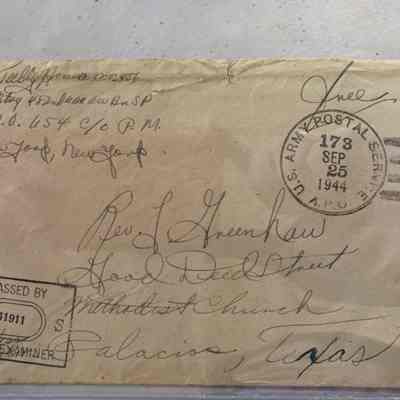 Btry
654 c/o P.M.
New York
Free
U.S. ARMY POSTAL SERVICE
173
SEP
25
1944
A.P.O.
Rev. J. Greenhaw
Good Deed Street
Methodist Church
Palacios, Texas
ASSED BY
41911
S
EXAMINER